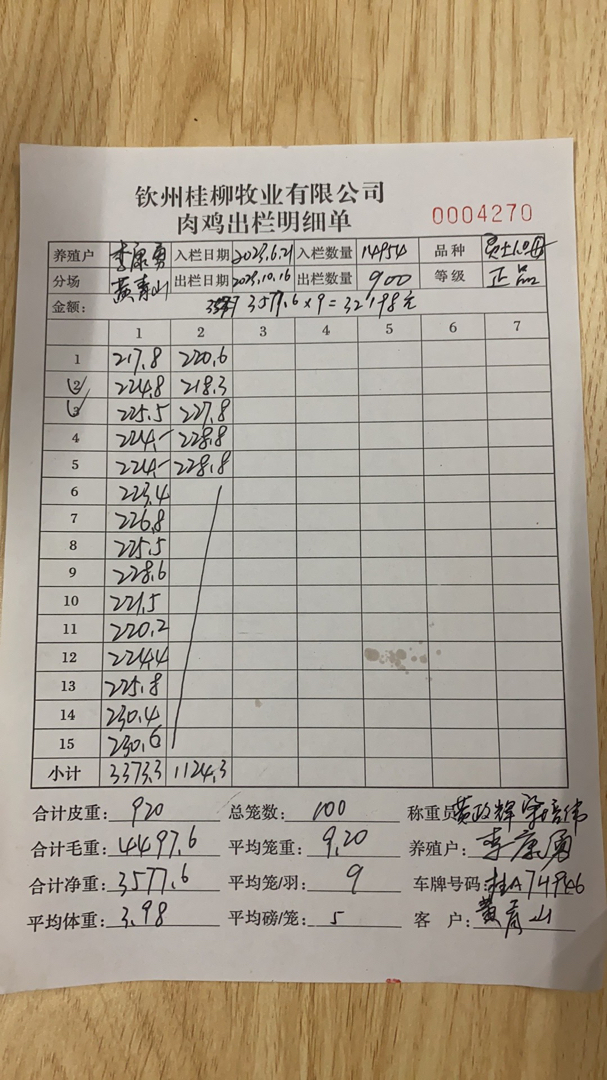 钦州桂柳牧业有限公司
肉鸡出栏明细单
0004270
养殖户 李康勇 入栏日期 2023.6.21 入栏数量 14954 品种
分场 黄青山 出栏日期 2023.10.16 出栏数量 900 等级 正品
金额: 3577.6×9=32198元
1 2 3 4 5 6 7
1 217.8 220.6
2 224.8 218.3
3 225.5 227.8
4 224.- 228.8
5 224.- 228.8
6 223.4
7 226.8
8 225.5
9 228.6
10 221.5
11 220.2
12 224.4
13 225.8
14 230.4
15 230.6
小计 3373.3 1124.3
合计皮重: 920 总笼数: 100 称重员 黄政辉 梁培伟
合计毛重: 4497.6 平均笼重: 9.20 养殖户: 李康勇
合计净重: 3577.6 平均笼/羽: 9 车牌号码: 桂A74946
平均体重: 3.98 平均磅/笼: 5 客户: 黄青山